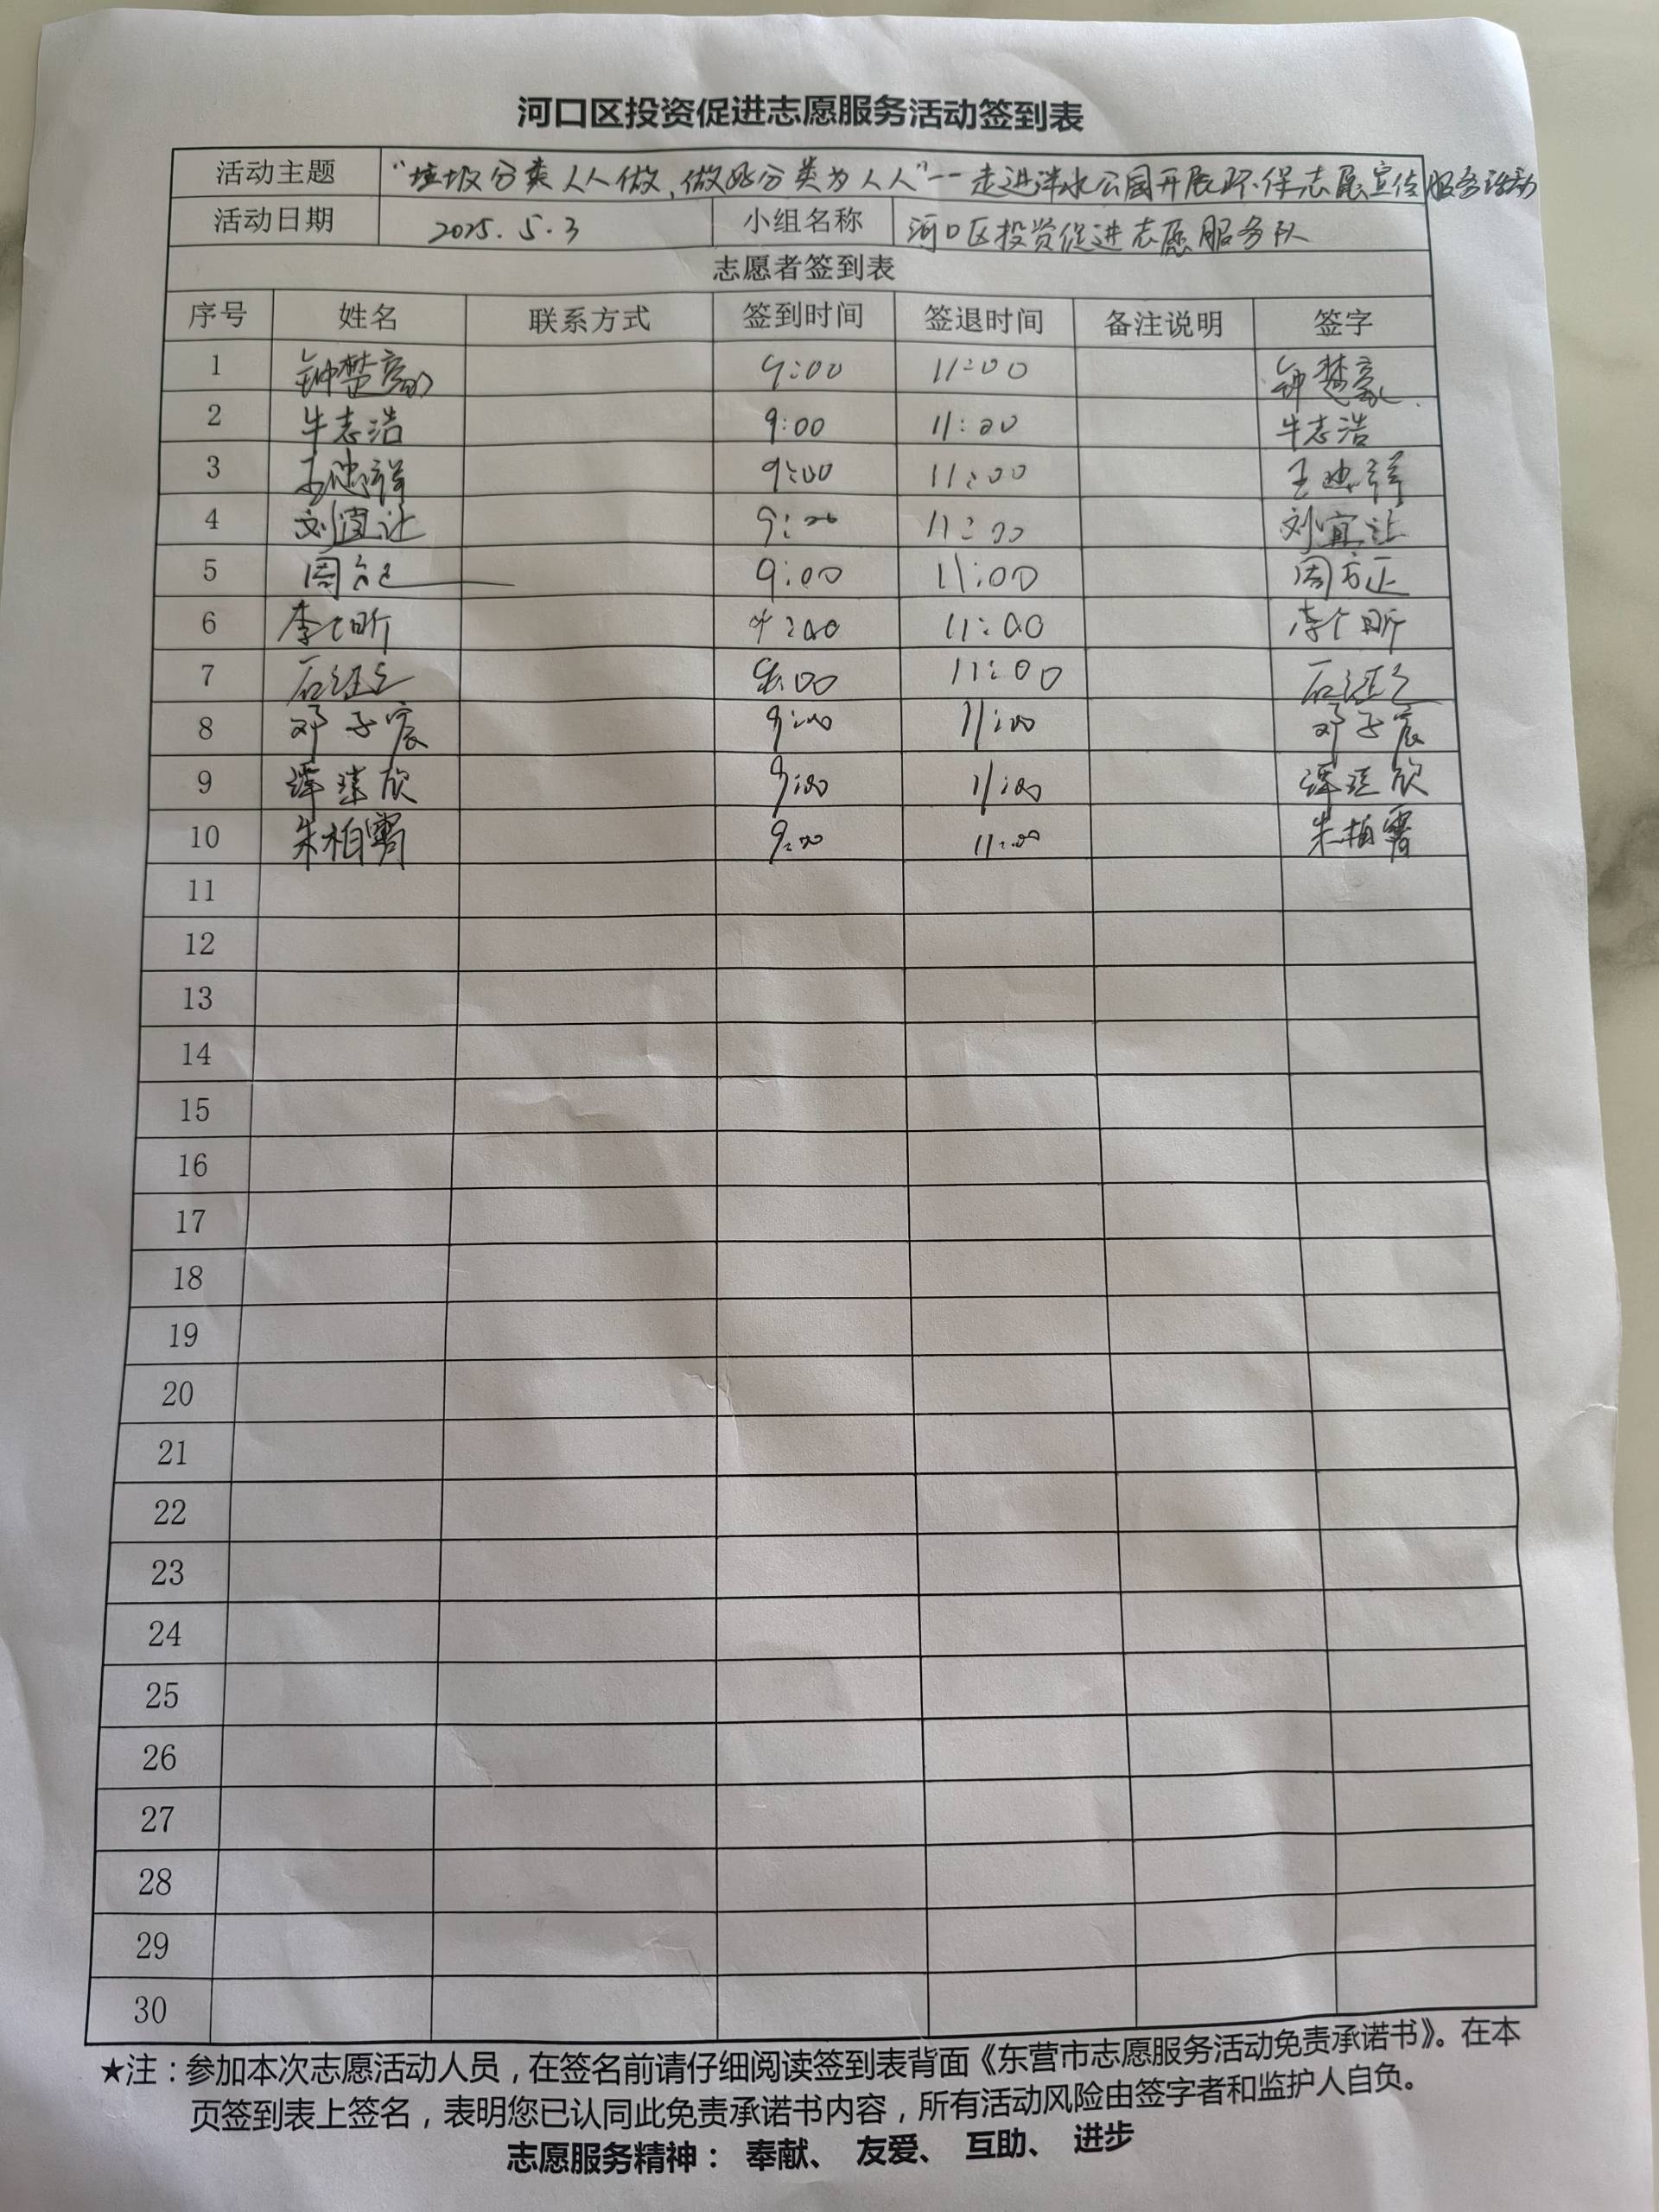 河口区投资促进志愿服务活动签到表
活动主题 "垃圾分类人人做，做好分类为人人"--走进泮水公园开展环保志愿宣传服务活动
活动日期 2025.5.3 小组名称 河口区投资促进志愿服务队
志愿者签到表
序号 姓名 联系方式 签到时间 签退时间 备注说明 签字
1 钟楚豪 9:00 11:00 钟楚豪
2 牛志浩 9:00 11:00 牛志浩
3 王忠祥 9:00 11:00 王忠祥
4 刘宜让 9:00 11:00 刘宜让
5 周方正 9:00 11:00 周方正
6 李 昕 9:00 11:00 李 昕
7 石 9:00 11:00 石
8 邓子宸 9:00 11:00 邓子宸
9 欣 9:00 11:00 欣
10 朱柏霄 9:00 11:00 朱柏霄
11
12
13
14
15
16
17
18
19
20
21
22
23
24
25
26
27
28
29
30
★注：参加本次志愿活动人员，在签名前请仔细阅读签到表背面《东营市志愿服务活动免责承诺书》。在本
页签到表上签名，表明您已认同此免责承诺书内容，所有活动风险由签字者和监护人自负。
志愿服务精神： 奉献、 友爱、 互助、 进步